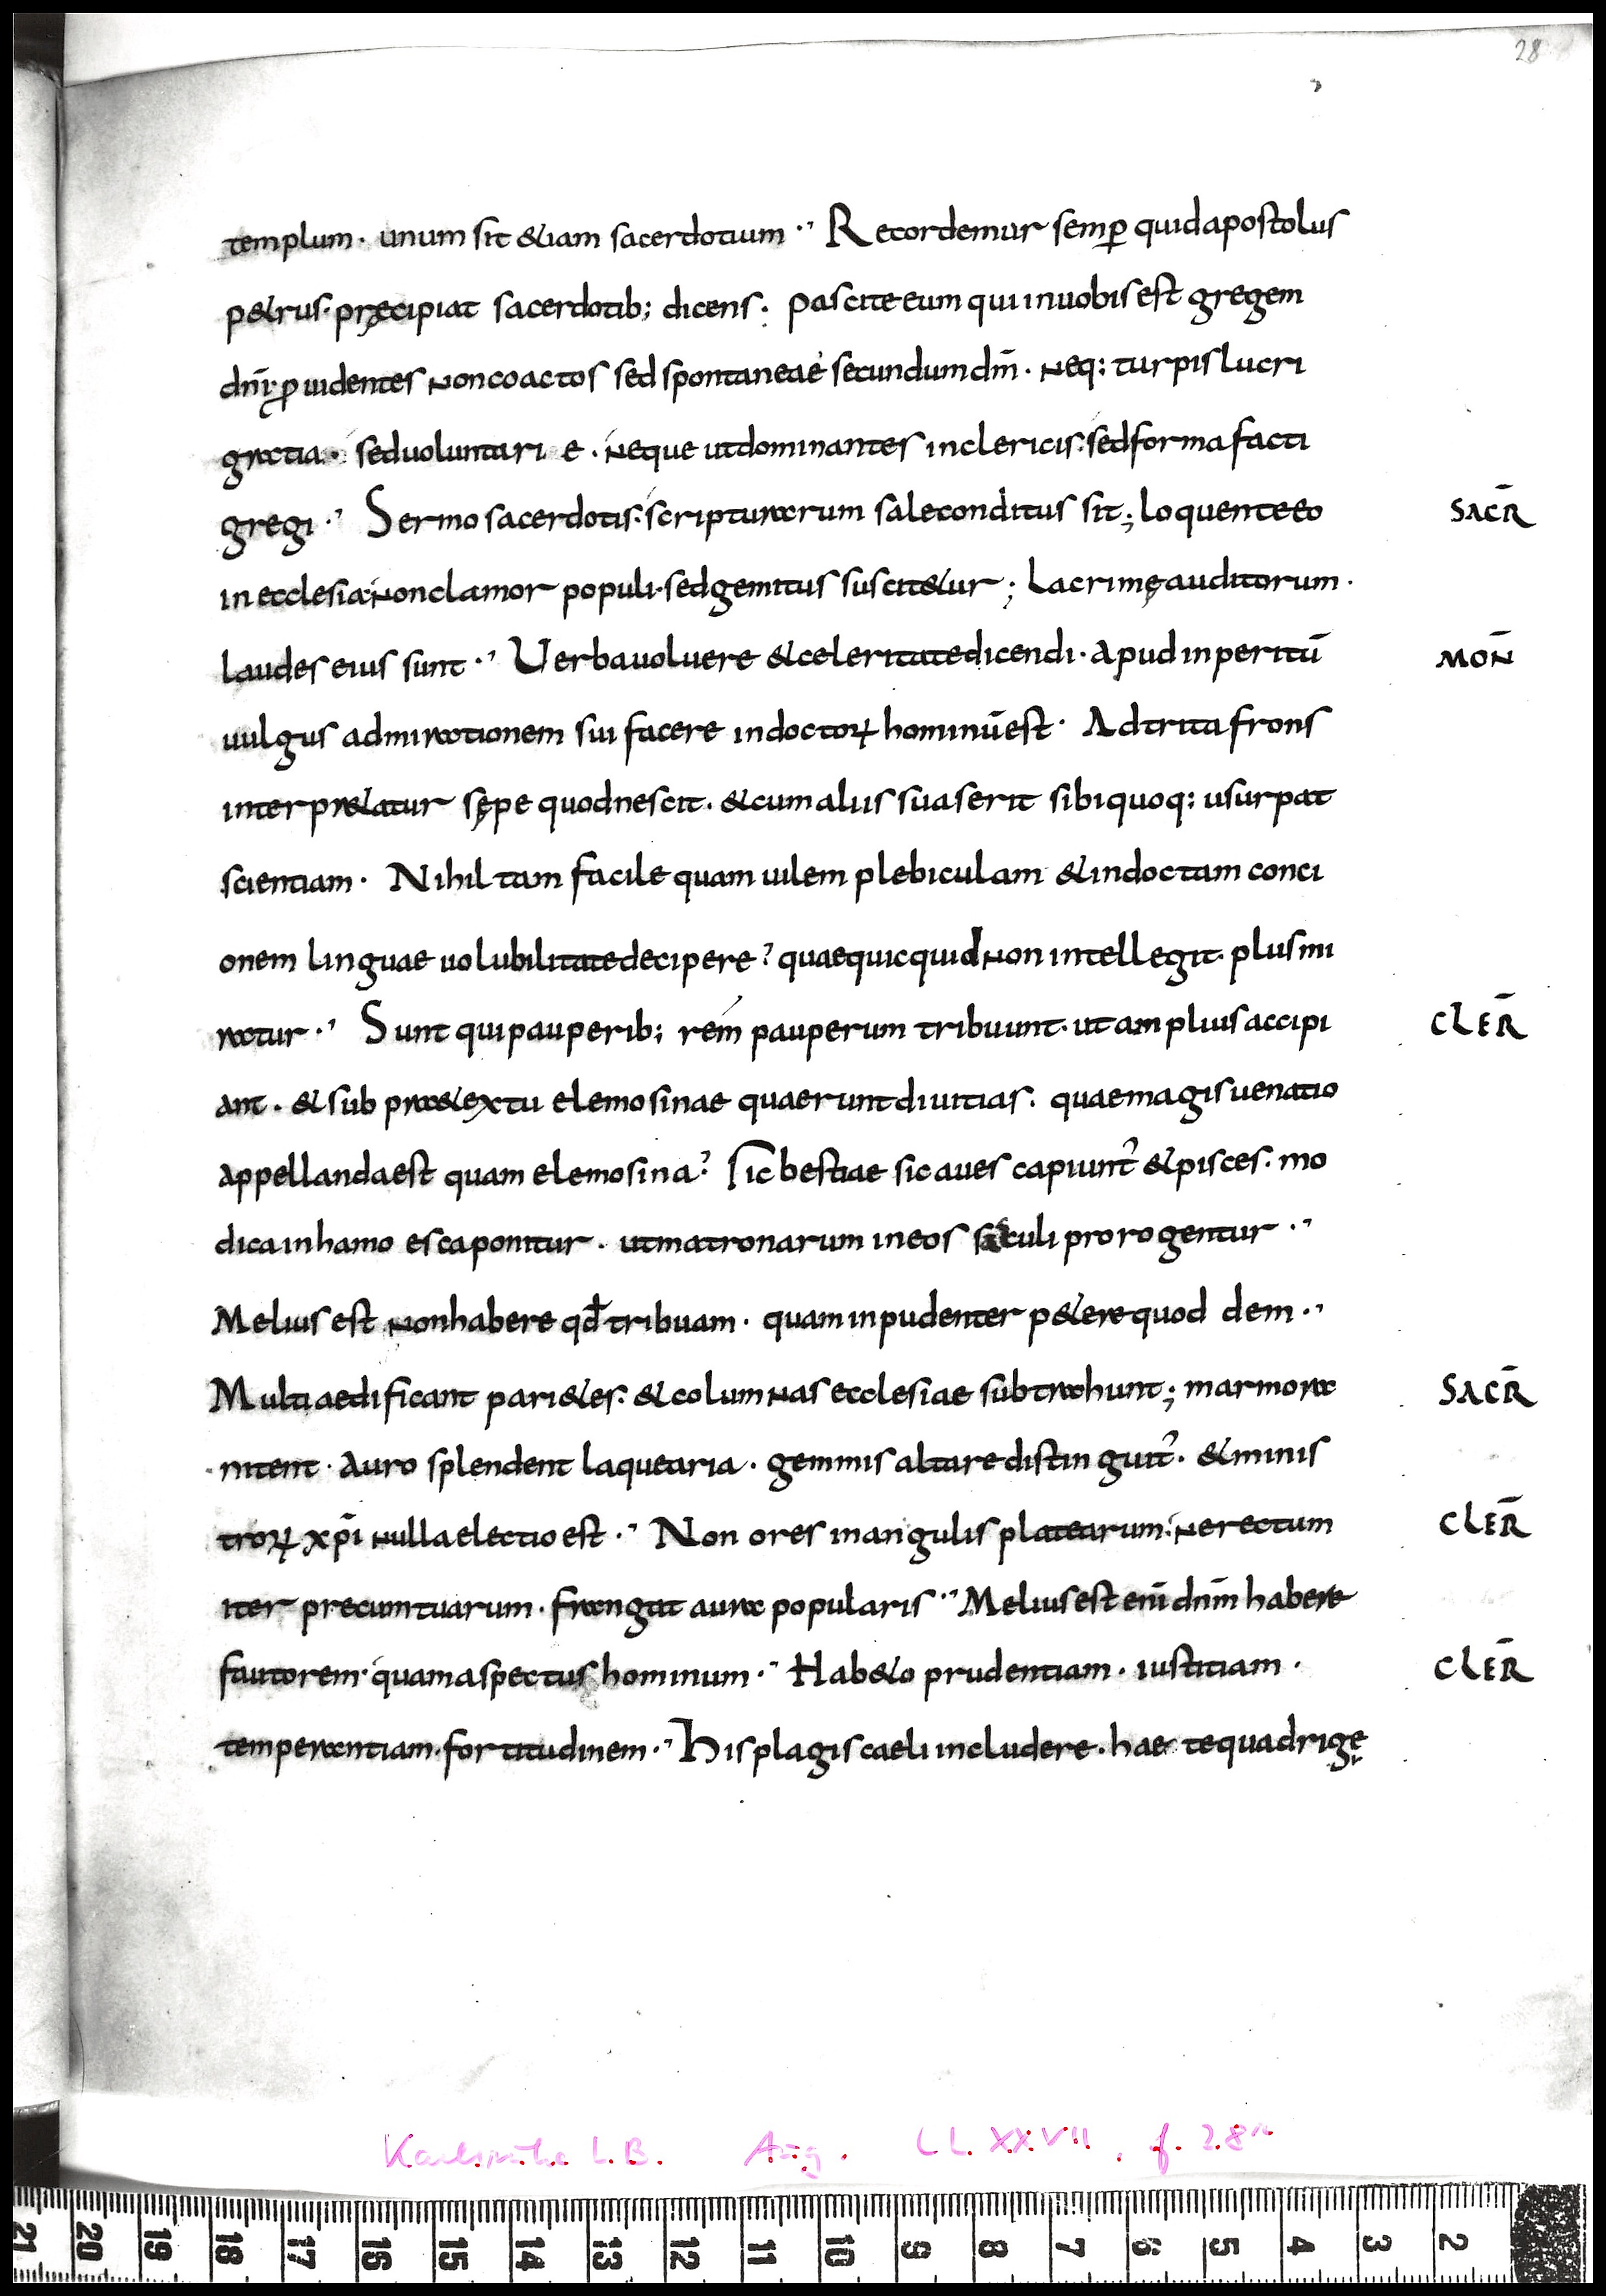 28
templum · unum sit &iam sacerdotium ·' Recordemur semꝑ quid apostolus
p&rus · pręcipiat sacerdotib; dicens · pascite eum qui in uobis est gregem
dn̄i ꝓuidentes non coactos sed spontaneae secundum dm̄ · neq: turpis lucri
gratia · sed uoluntarie · neque ut dominantes in clericis · sed forma facti
gregi ·' Sermo sacerdotis · scripturarum sale conditus sit; loquente eo SACR̄
in ecclesia · non clamor populi · sed gemitus suscit&ur; lacrimę auditorum ·
laudes eius sunt ·' Uerba uoluere & celeritate dicendi · apud inperitū MON̄
uulgus admirationem sui facere indoctoꝝ hominū est · Adtrita frons
interpr&atur sępe quod nescit · & cum aliis suaserit sibi quoq: usurpat
scientiam · Nihil tam facile quam uilem plebiculam & indoctam conci
onem linguae uolubilitate decipere? quae quicquid non intellegit · plus mi
ratur ·' Sunt qui pauperib; rem pauperum tribuunt · ut amplius accipi CLER̄
ant · & sub pra&extu elemosinae quaerunt diuitias · quae magis uenatio
appellanda est quam elemosina? sic bestiae sic aues capiunt᷑ & pisces · mo
dica in hamo esca ponitur · ut matronarum in eos sacculi prorogentur ·'
Melius est non habere qđ tribuam · quam inpudenter p&ere quod dem ·'
Multi aedificant pari&es · & columnas ecclesiae subtrahunt; marmora SACR̄
nitent · auro splendent laquearia · gemmis altare distinguit᷑ · & minis
troꝝ xp̄i nulla electio est ·' Non ores in angulis platearum · ne rectum CLER̄
iter precum tuarum · frangat aura popularis ·' Melius est enī dn̄m habere
fautorem · quam aspectus hominum ·' Hab&o prudentiam · iustitiam · CLER̄
temperantiam · fortitudinem ·' His plagis caeli includere · hae te quadrigę
Karlsruhe L.B. Aug. CCXXVII, f. 28r
21 20 19 18 17 16 15 14 13 12 11 10 9 8 7 6 5 4 3 2